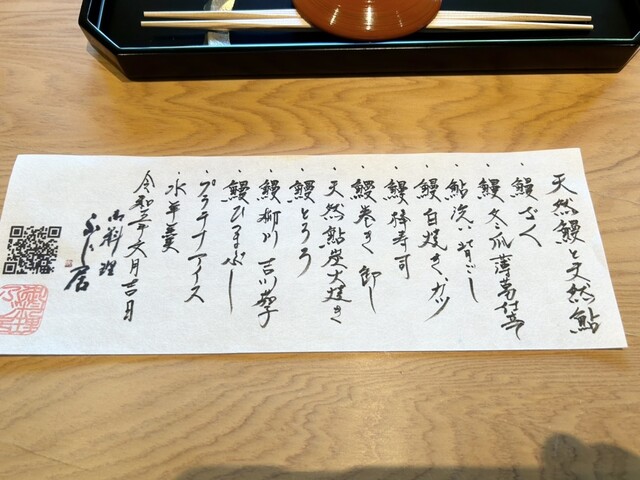 天然鰻と天然鮎
・鰻ざく
・鰻 冬瓜 薄葛仕立
・鮎洗い 背ごし
・鰻白焼き、ガツ
・鰻棒寿司
・鰻巻き 卸し
・天然鮎炭火焼き
・鰻とろろ
・鰻柳川 吉川茄子
・鰻ひつまぶし
・プラチナアイス
・水羊羹
令和三年六月吉日
御料理
ふじ居